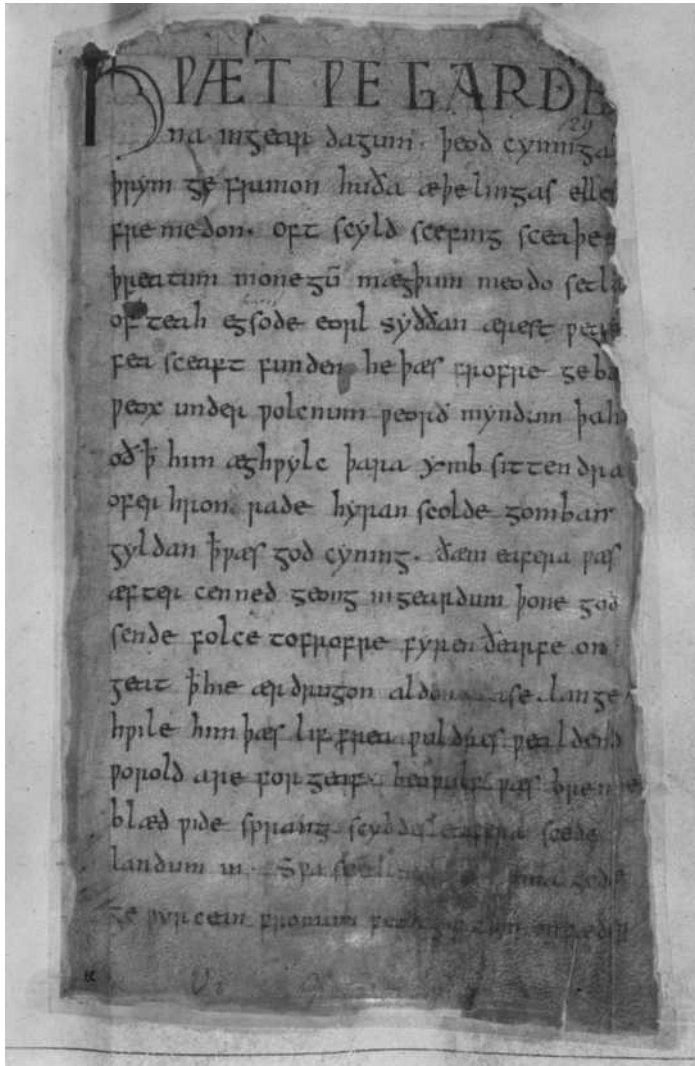 HǷÆT ǷE GARDE
na ingear dagum. þeod cyninga
þrym ge frunon huða æþelingas elle
fre medon. oft scyld scefing sceaþe
þreatum monegū mægþum meodo setla
of teah egsode eorl syððan ærest ƿear
fea sceaft funden he þæs frofre geba
ƿeox under ƿolcnum ƿeorð myndum þah
oð ꝥ him æghƿylc þara ymb sittendra
ofer hron rade hyran scolde gomban
gyldan ꝥ ƿæs god cyning. ðæm eafera ƿæs
æfter cenned geong ingeardum þone god
sende folce tofrofre fyren ðearfe on
geat ꝥ hie ær drugon aldor ase. lange
hƿile him þæs lif frea ƿuldres ƿealdend
ƿorold are for geaf. beoƿulf ƿæs breme
blæd ƿide sprang scyldes eafera scede
landum in. Sƿa sceal ma gode
ge ƿyrcean fromum feoh giftum